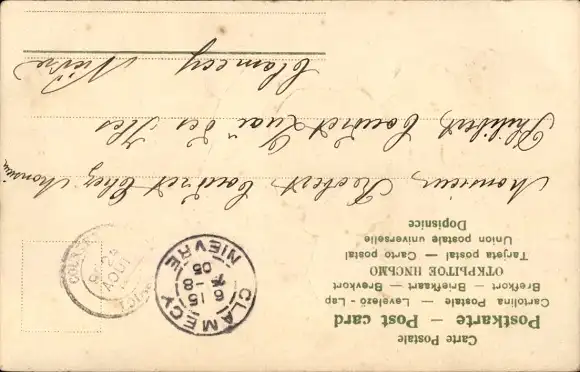 Carte Postale
Postkarte — Post card
Cartolina Postale — Levelező-Lap
Brefkort — Briefkaart — Brevkort
ОТКРЫТОЕ ПИСЬМО
Tarjeta postal — Carto postal
Union postale universelle
Dopisnice
CLAMECY
6 15
-8
05
NIEVRE
24
AOUT
Monsieur Robert Coudret Chez Monsieur
Philibert Coudret Quai des Iles
Clamecy
Nièvre